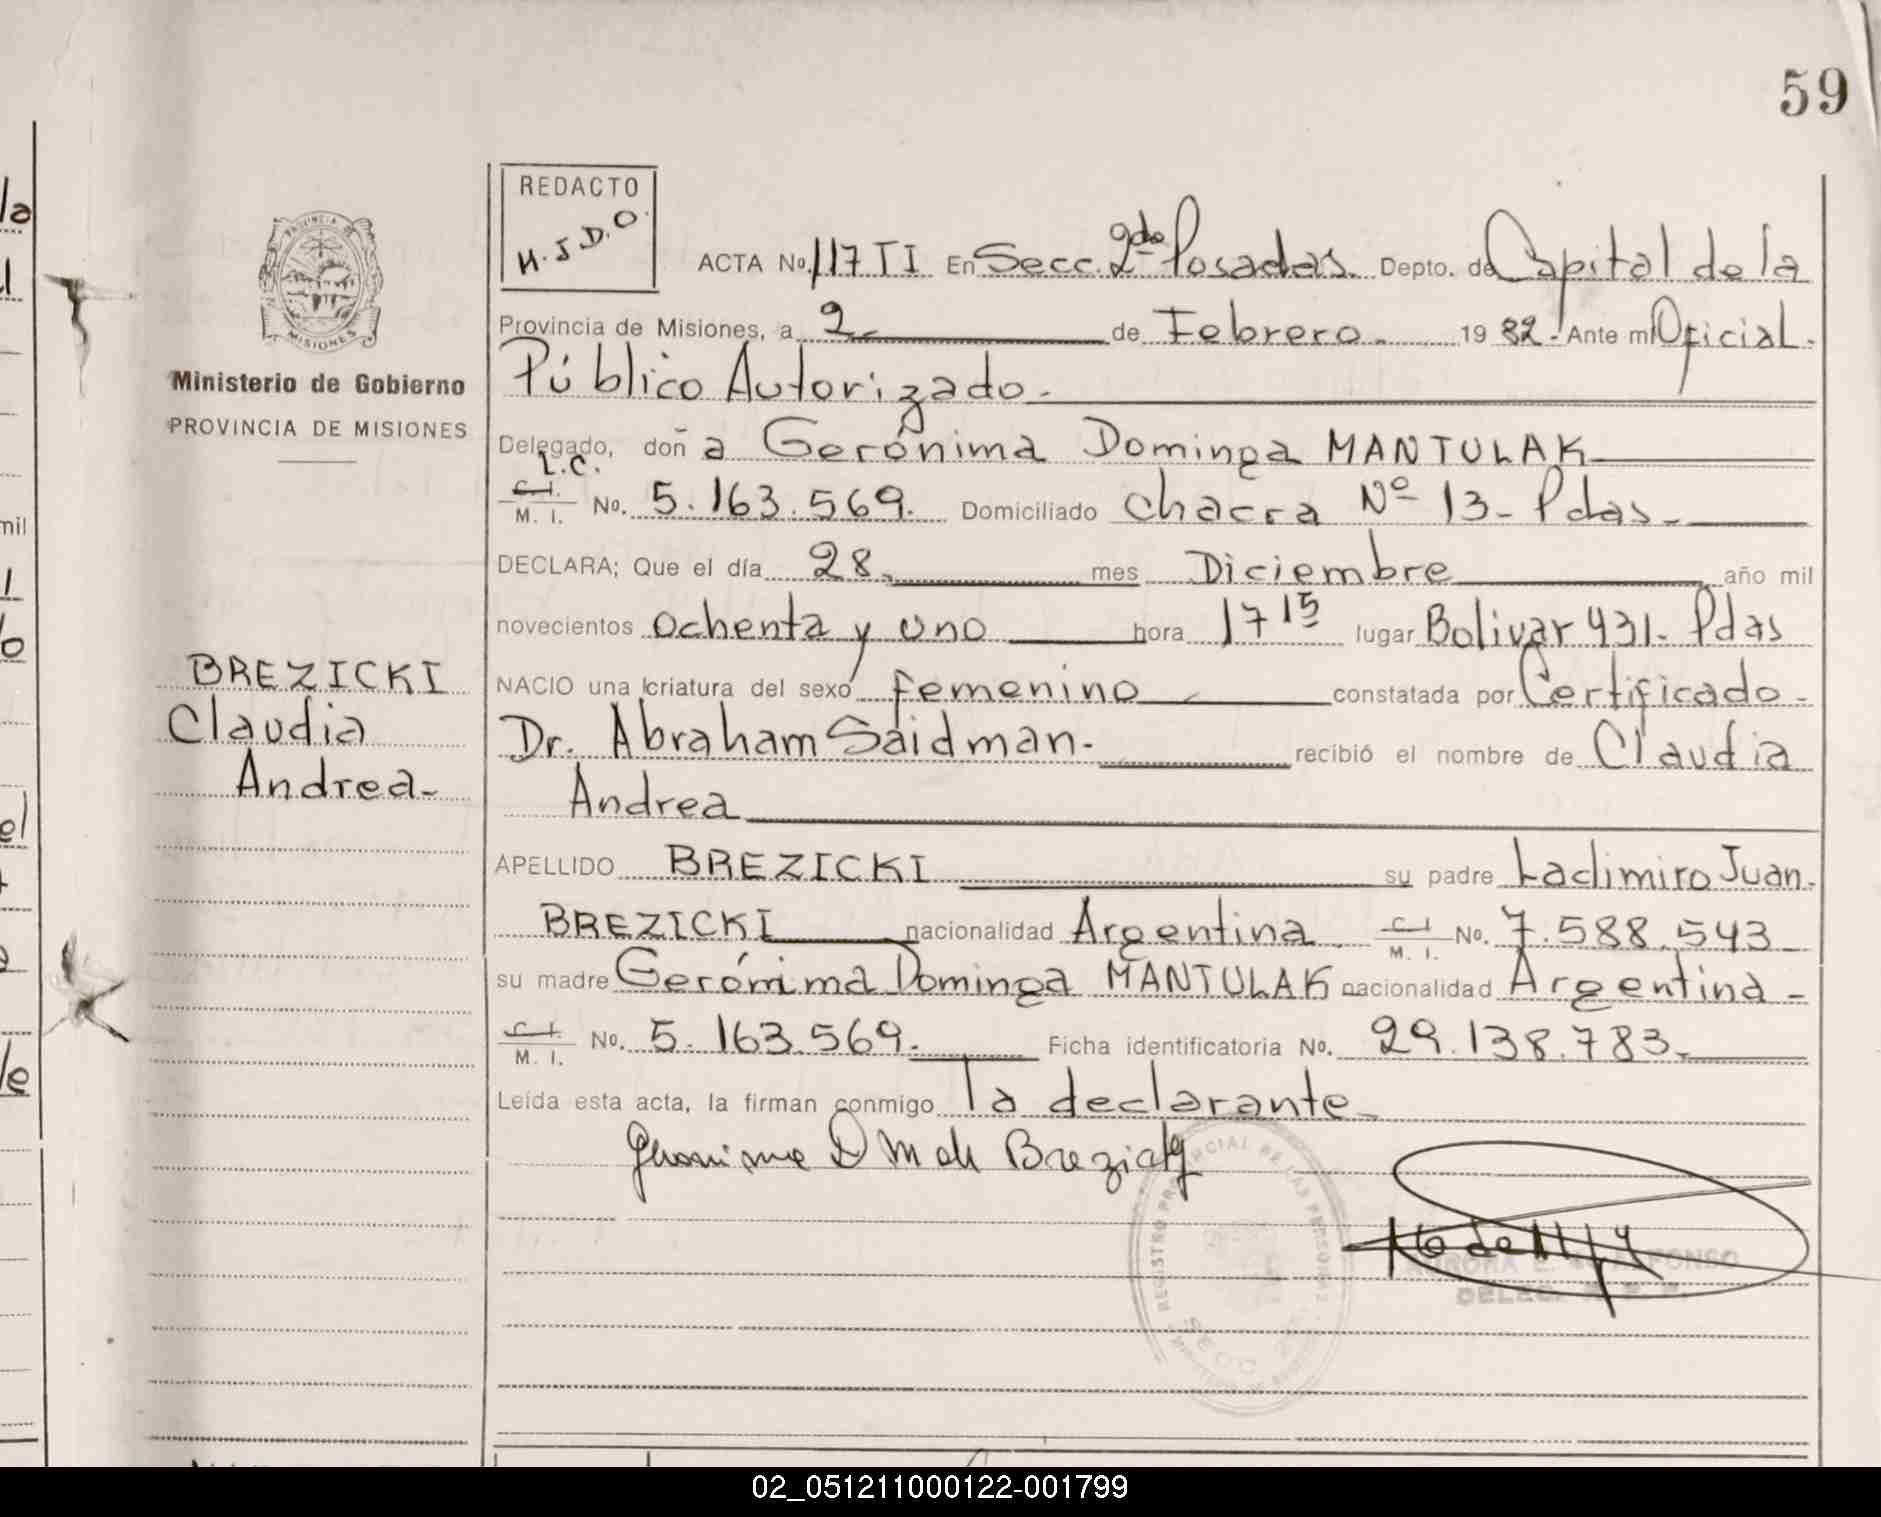 59
REDACTO
H.J D.O.
PROVINCIA
MISIONES
Ministerio de Gobierno
PROVINCIA DE MISIONES
BREZICKI
Claudia
Andrea-
ACTA No. 117 TI En Secc. 2da Posadas. Depto. de Capital de la
Provincia de Misiones, a 2 de Febrero. 1982.- Ante mi Oficial.
Público Autorizado.-
Delegado, doña Gerónima Dominga MANTULAK
L.C.
C.I. M. I. No. 5.163.569. Domiciliado Chacra Nº 13- Pdas.-
DECLARA; Que el día 28. mes Diciembre año mil
novecientos ochenta y uno hora 17 15 lugar Bolivar 431- Pdas
NACIO una criatura del sexo femenino constatada por Certificado-
Dr. Abraham Saidman. recibió el nombre de Claudia
Andrea
APELLIDO BREZICKI su padre Ladimiro Juan.
BREZICKI nacionalidad Argentina. C.I. M. I. No. 7.588.543
su madre Gerónima Dominga MANTULAK nacionalidad Argentina-
C.I. M. I. No. 5.163.569. Ficha identificatoria No. 29.138.783.-
Leída esta acta, la firman conmigo la declarante-
REGISTRO PROVINCIAL DE LAS PERSONAS
SECC
02_051211000122-001799